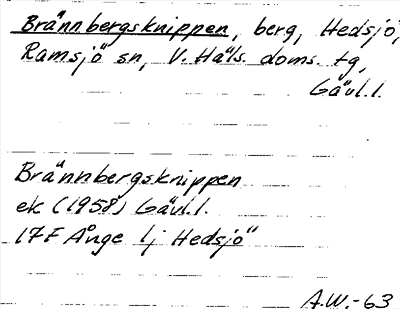 Brännbergsknippen, berg, Hedsjö,
Ramsjö sn, V. Häls. doms. tg,
Gävl.l.
Brännbergsknippen
ek (1958) Gävl.l.
17F Ånge lj Hedsjö
A.W.-63